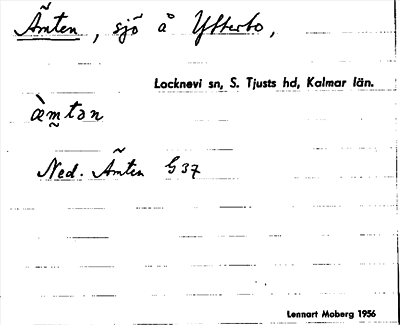 Ämten, sjö å Ytterbo,
Locknevi sn, S. Tjusts hd, Kalmar län.
æ̀m̰tən
Ned. Ämten G 37
Lennart Moberg 1956